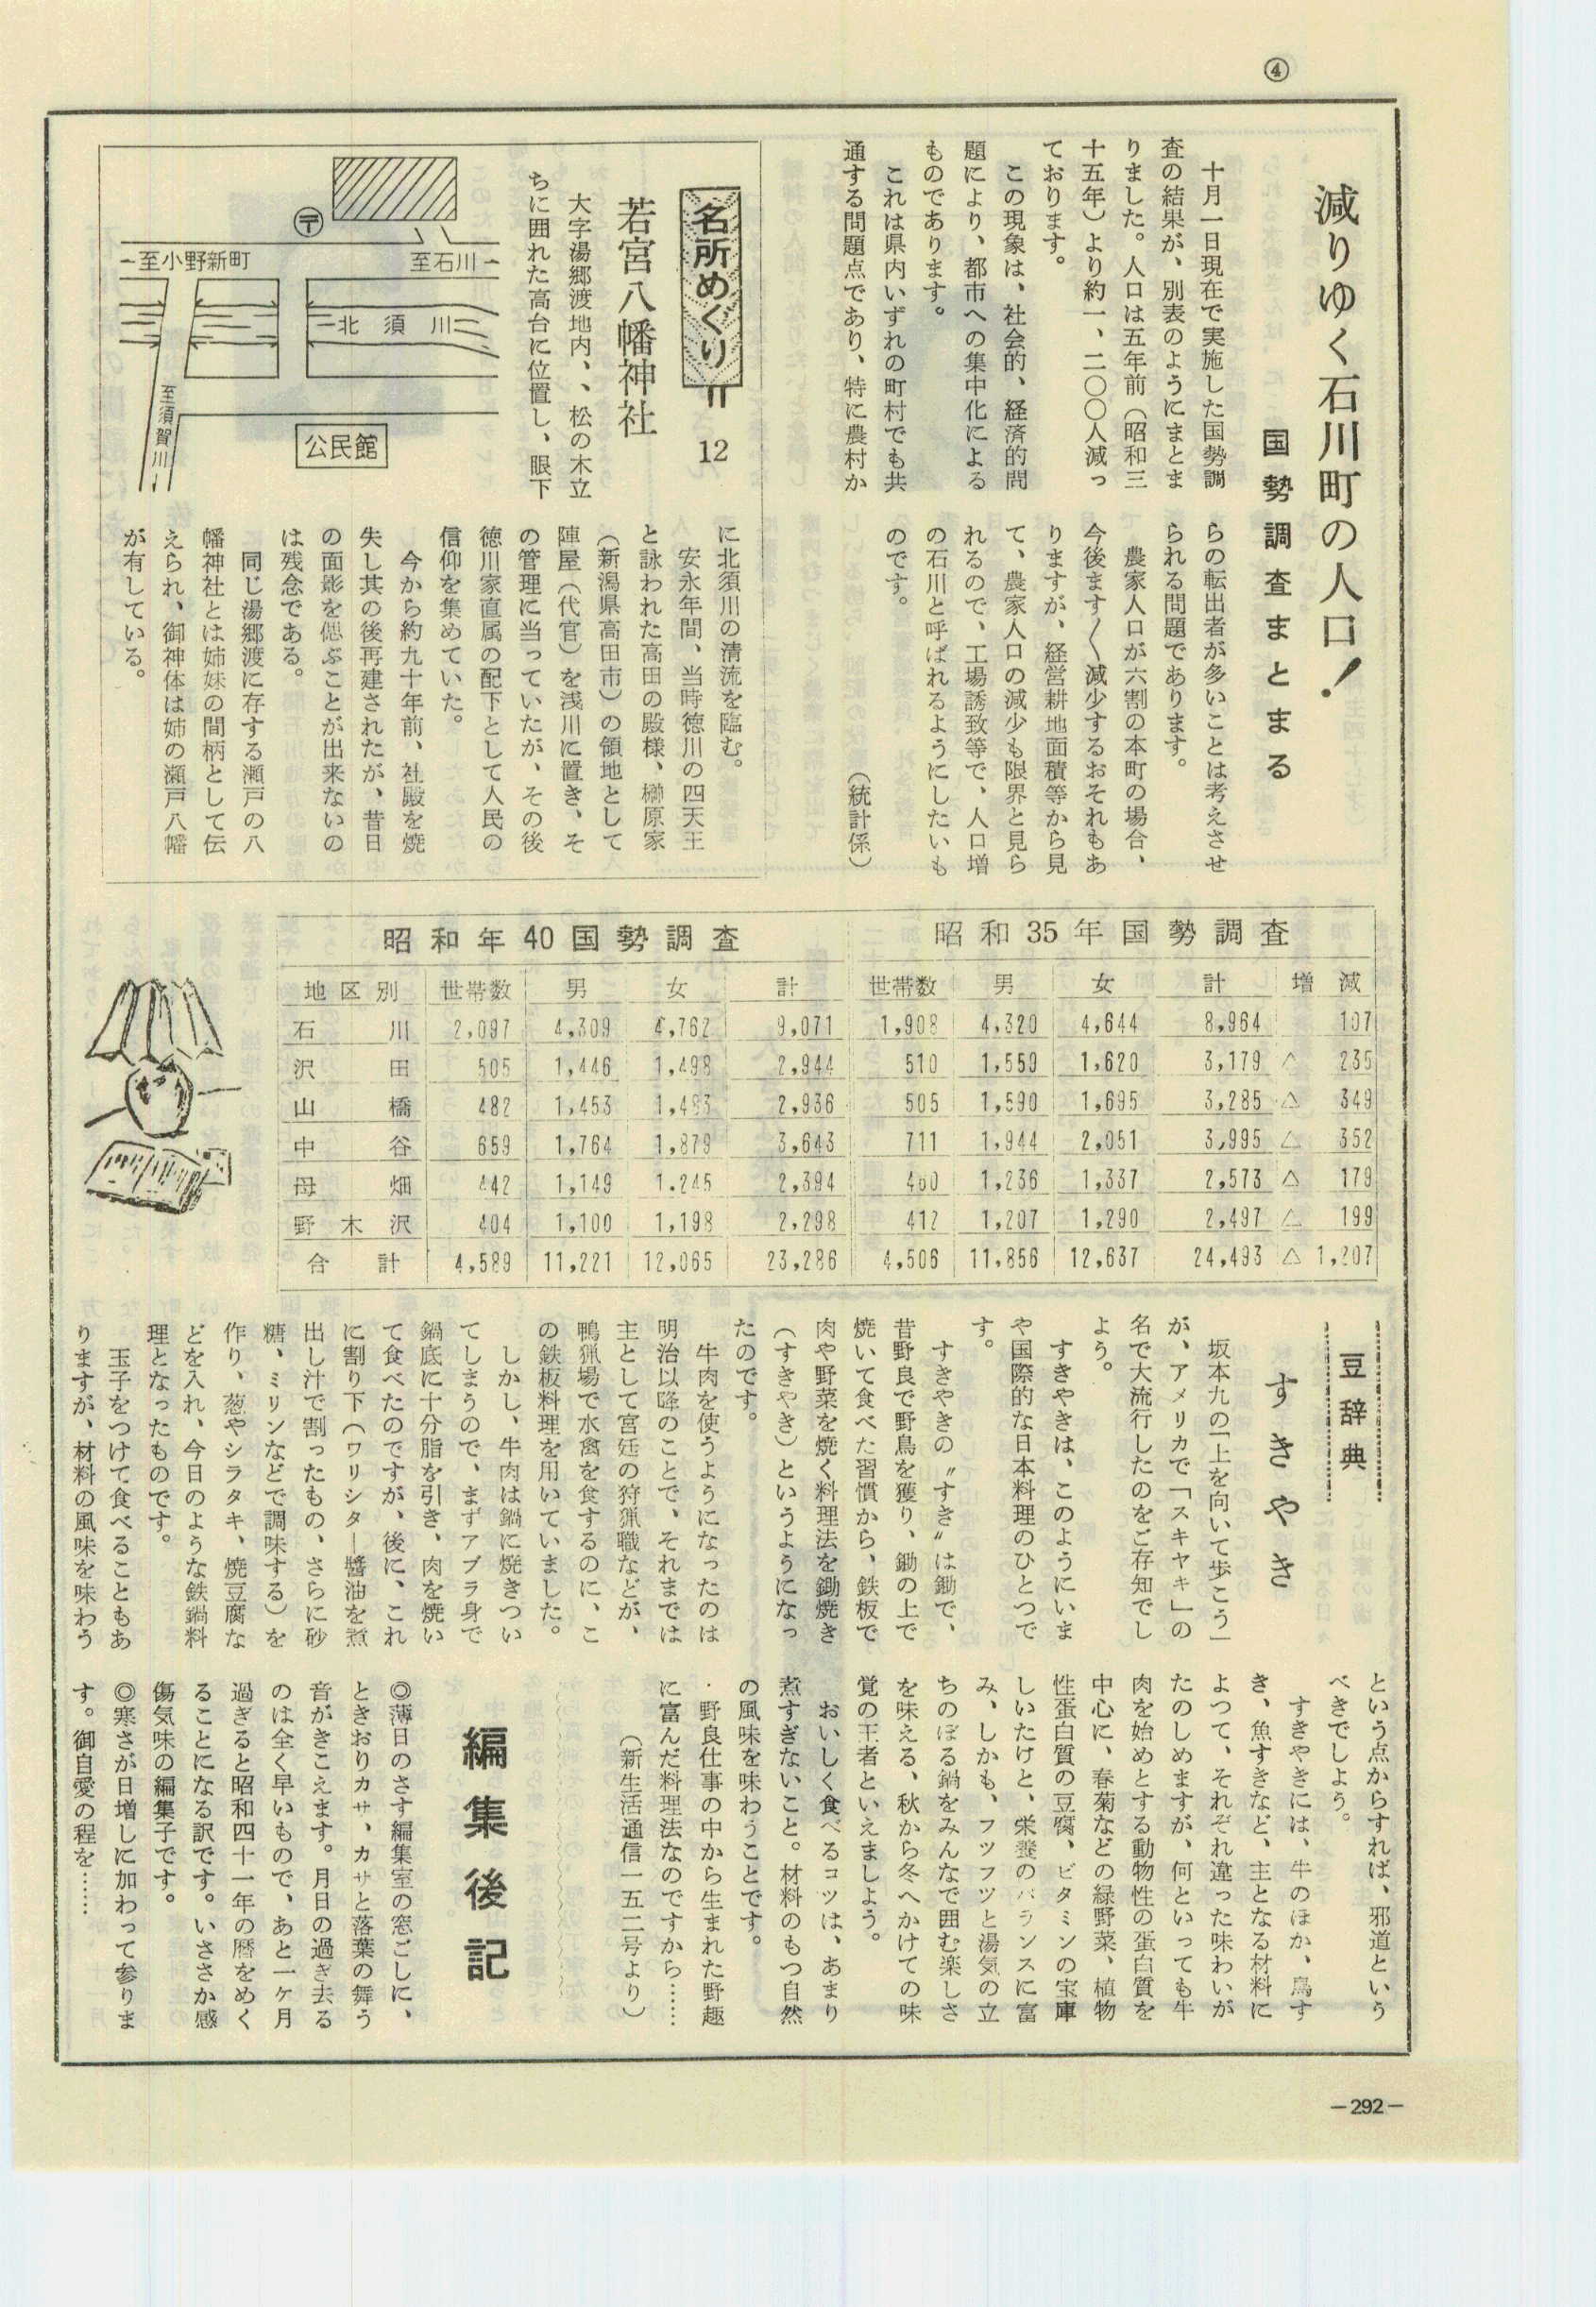 ④
減りゆく石川町の人口！
国勢調査まとまる
十月一日現在で実施した国勢調
査の結果が、別表のようにまとま
りました。人口は五年前（昭和三
十五年）より約一、二〇〇人減っ
ております。
この現象は、社会的、経済的問
題により、都市への集中化による
ものであります。
これは県内いずれの町村でも共
通する問題点であり、特に農村か
らの転出者が多いことは考えさせ
られる問題であります。
農家人口が六割の本町の場合、
今後ます〱減少するおそれもあ
りますが、経営耕地面積等から見
て、農家人口の減少も限界と見ら
れるので、工場誘致等で、人口増
の石川と呼ばれるようにしたいも
のです。
（統計係）
名所めぐり＝12
若宮八幡神社
大字湯郷渡地内、、松の木立
ちに囲れた高台に位置し、眼下
〒
至小野新町
至石川
北須川
至須賀川
公民館
に北須川の清流を臨む。
安永年間、当時徳川の四天王
と詠われた高田の殿様、榊原家
（新潟県高田市）の領地として
陣屋（代官）を浅川に置き、そ
の管理に当っていたが、その後
徳川家直属の配下として人民の
信仰を集めていた。
今から約九十年前、社殿を焼
失し其の後再建されたが、昔日
の面影を偲ぶことが出来ないの
は残念である。
同じ湯郷渡に存する瀬戸の八
幡神社とは姉妹の間柄として伝
えられ、御神体は姉の瀬戸八幡
が有している。
昭和年40国勢調査 昭和35年国勢調査
地区別 世帯数 男 女 計 世帯数 男 女 計 増減
石川 2,097 4,309 4,762 9,071 1,908 4,320 4,644 8,964 107
沢田 505 1,446 1,498 2,944 510 1,559 1,620 3,179 △ 235
山橋 482 1,453 1,483 2,936 505 1,590 1,695 3,285 △ 349
中谷 659 1,764 1,879 3,643 711 1,944 2,051 3,995 △ 352
母畑 442 1,149 1.245 2,394 460 1,236 1,337 2,573 △ 179
野木沢 404 1,100 1,198 2,298 412 1,207 1,290 2,497 △ 199
合計 4,589 11,221 12,065 23,286 4,506 11,856 12,637 24,493 △ 1,207
豆辞典
すきやき
坂本九の「上を向いて歩こう」
が、アメリカで「スキヤキ」の
名で大流行したのをご存知でし
よう。
すきやきは、このようにいま
や国際的な日本料理のひとつで
す。
すきやきの〝すき〟は鋤で、
昔野良で野鳥を獲り、鋤の上で
焼いて食べた習慣から、鉄板で
肉や野菜を焼く料理法を鋤焼き
（すきやき）というようになっ
たのです。
牛肉を使うようになったのは
明治以降のことで、それまでは
主として宮廷の狩猟職などが、
鴨猟場で水禽を食するのに、こ
の鉄板料理を用いていました。
しかし、牛肉は鍋に焼きつい
てしまうので、まずアブラ身で
鍋底に十分脂を引き、肉を焼い
て食べたのですが、後に、これ
に割り下（ワリシター醬油を煮
出し汁で割ったもの、さらに砂
糖、ミリンなどで調味する）を
作り、葱やシラタキ、焼豆腐な
どを入れ、今日のような鉄鍋料
理となったものです。
玉子をつけて食べることもあ
りますが、材料の風味を味わう
という点からすれば、邪道という
べきでしよう。
すきやきには、牛のほか、鳥す
き、魚すきなど、主となる材料に
よって、それぞれ違った味わいが
たのしめますが、何といっても牛
肉を始めとする動物性の蛋白質を
中心に、春菊などの緑野菜、植物
性蛋白質の豆腐、ビタミンの宝庫
しいたけと、栄養のバランスに富
み、しかも、フツフツと湯気の立
ちのぼる鍋をみんなで囲む楽しさ
を味える、秋から冬へかけての味
覚の王者といえましよう。
おいしく食べるコツは、あまり
煮すぎないこと。材料のもつ自然
の風味を味わうことです。
・野良仕事の中から生まれた野趣
に富んだ料理法なのですから……
（新生活通信一五二号より）
編集後記
◎薄日のさす編集室の窓ごしに、
ときおりカサ、カサと落葉の舞う
音がきこえます。月日の過ぎ去る
のは全く早いもので、あと一ヶ月
過ぎると昭和四十一年の暦をめく
ることになる訳です。いささか感
傷気味の編集子です。
◎寒さが日増しに加わって参りま
す。御自愛の程を……
－292－